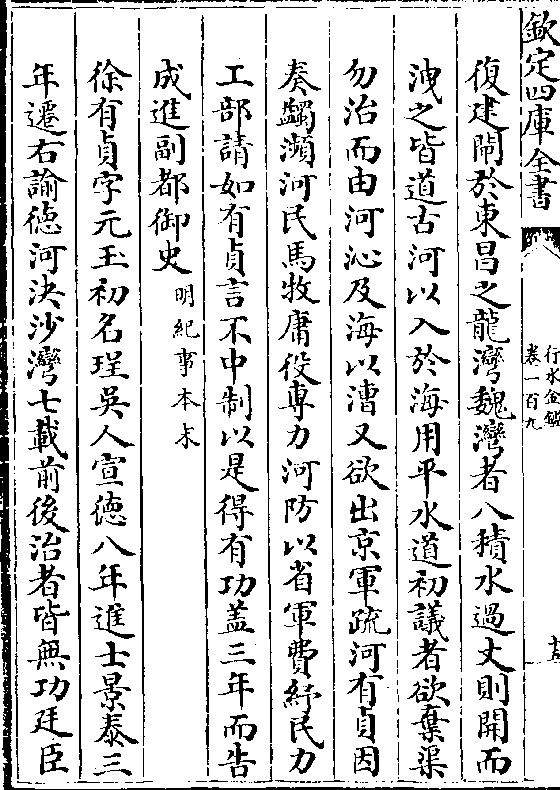 欽定四庫全書
行水金鑑
卷一百九
十五
復建閘於東昌之龍灣魏灣者八積水過丈則開而
洩之皆道古河以入於海用平水道初議者欲棄渠
勿治而由河沁及海以漕又欲出京軍疏河有貞因
奏蠲瀕河民馬牧庸役專力河防以省軍費紓民力
工部請如有貞言不中制以是得有功蓋三年而告
成進副都御史明紀事本末
徐有貞字元玉初名珵吳人宣徳八年進士景泰三
年遷右諭徳河決沙灣七載前後治者皆無功廷臣